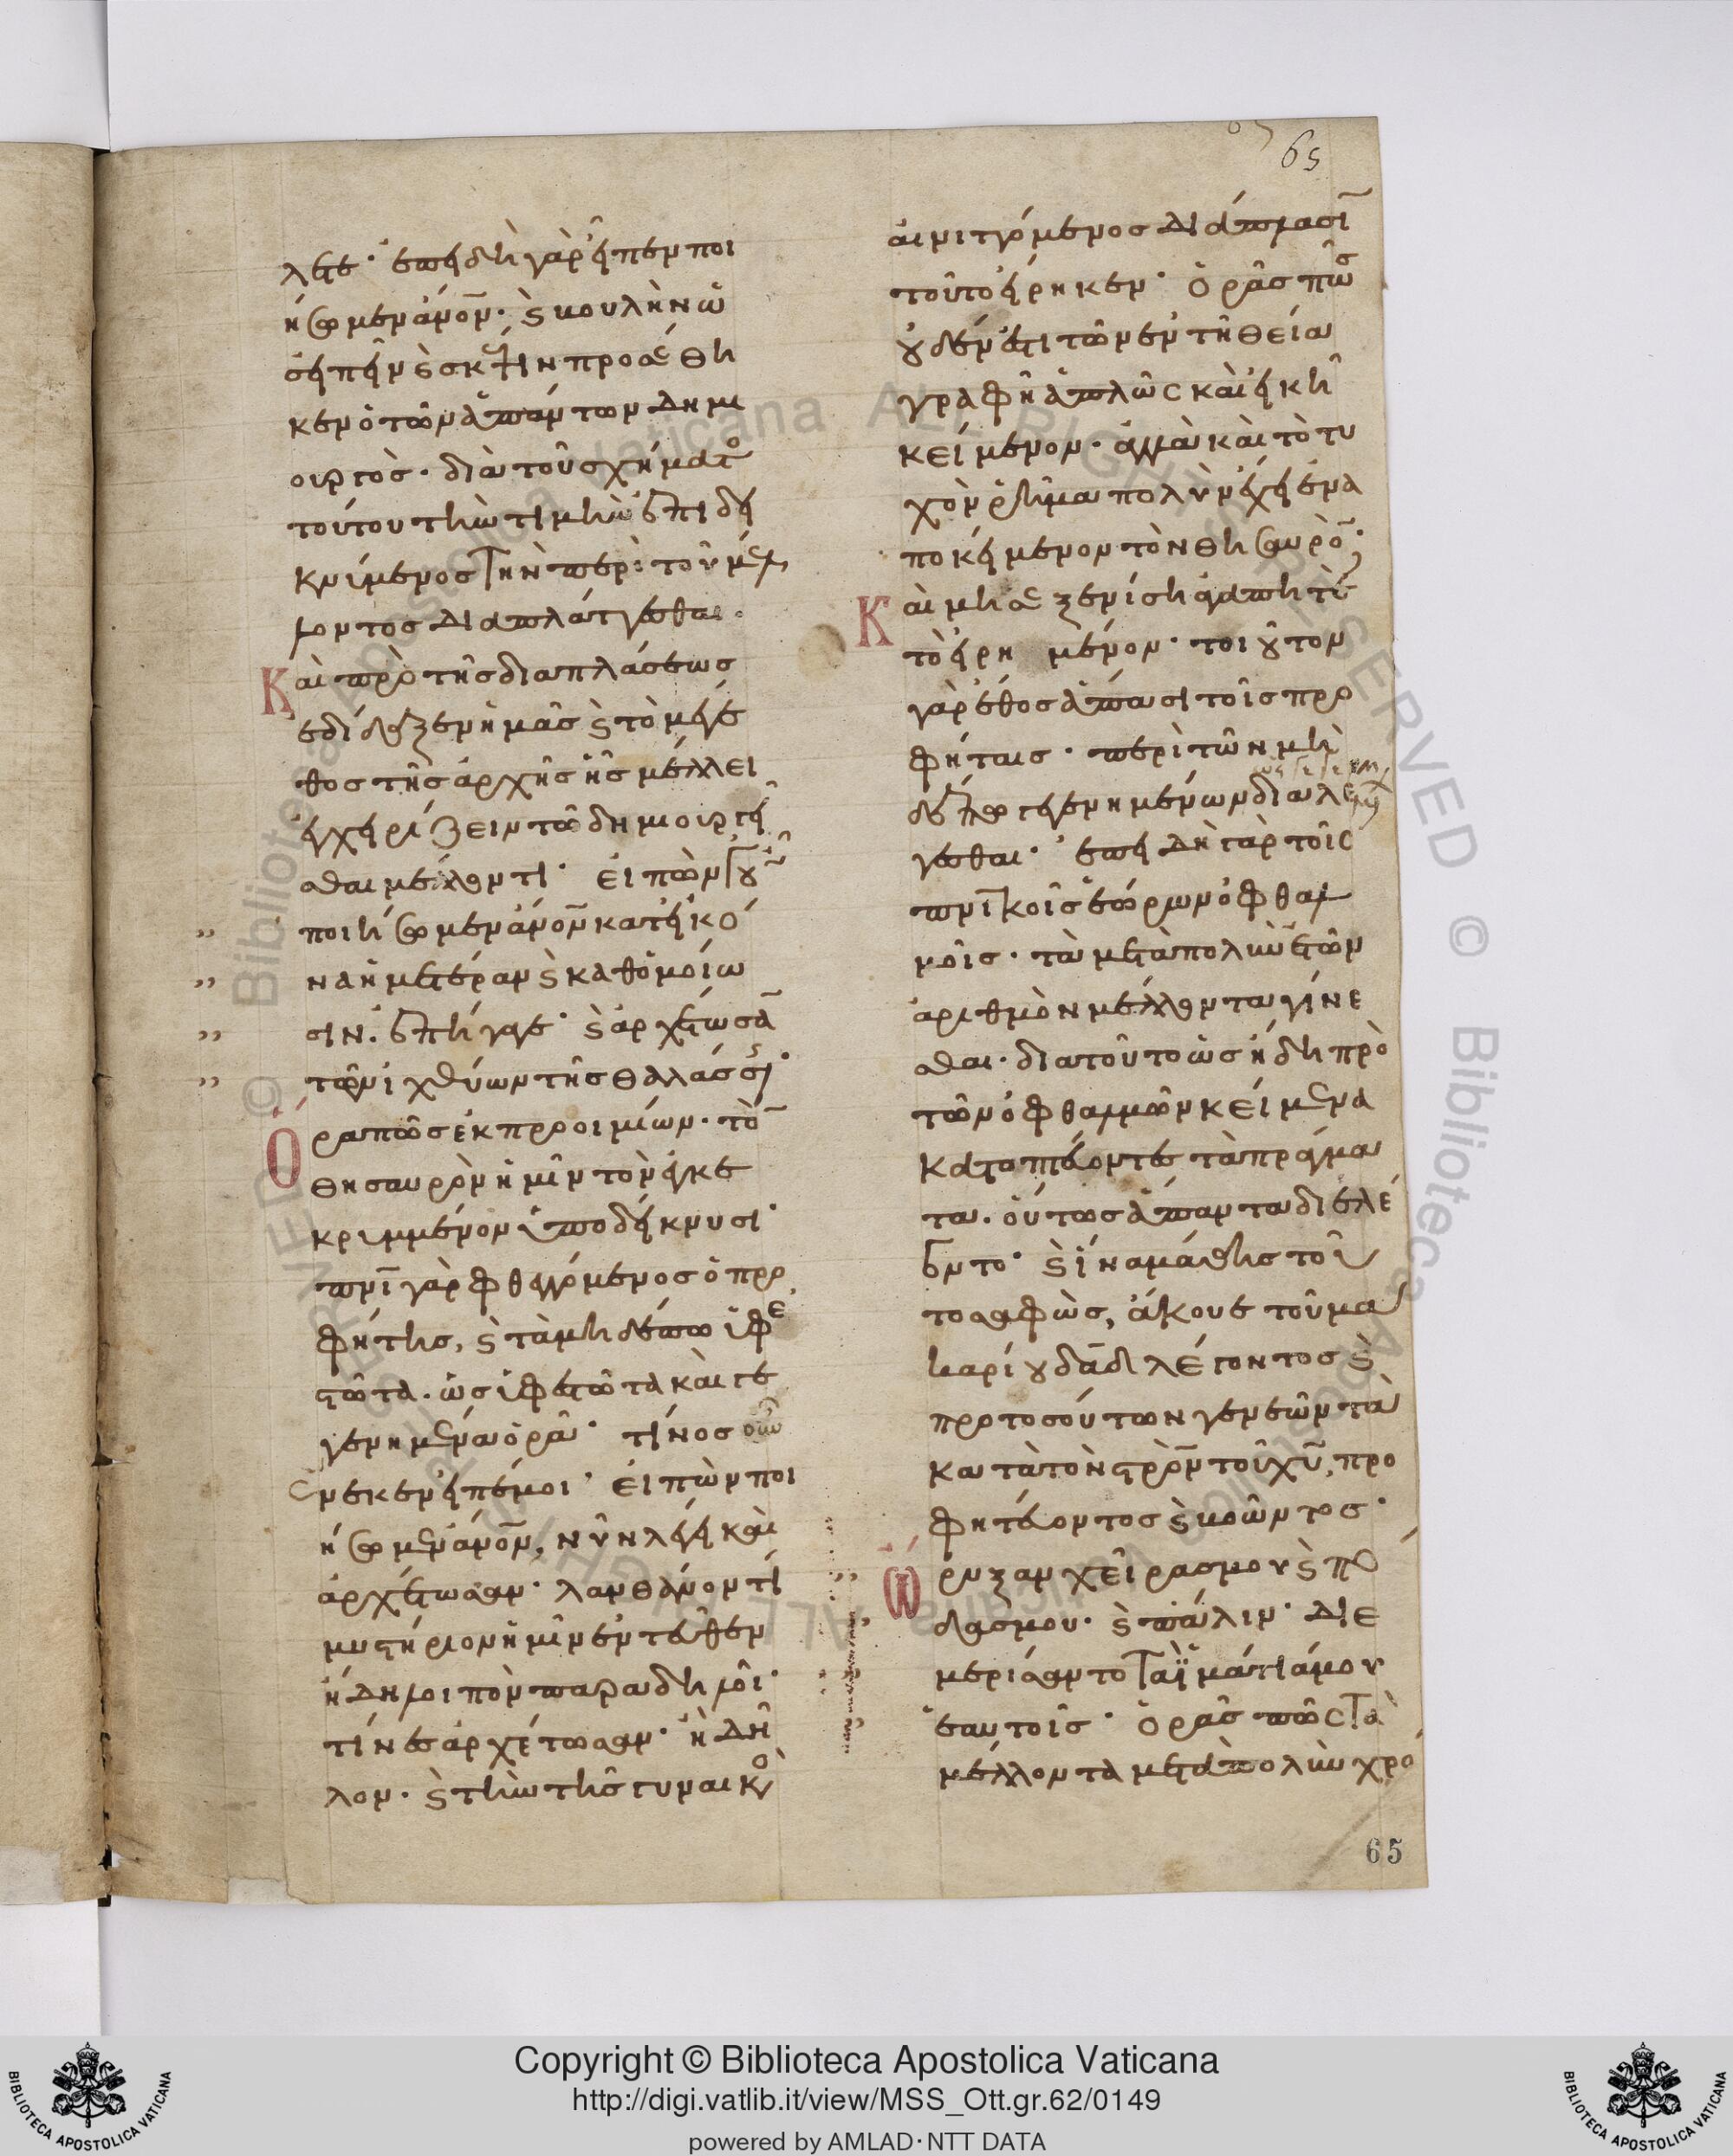 65
λεις· ἐπειδὴ γὰρ εἶπεν ποι
ήσωμεν ἄνον· καὶ βουλὴν ὡ
σεὶ πεῖν καὶ σκέψιν προσέθη
κεν ὁ τῶν ἁπάντων δημι
ουργὸς· διὰ τοῦ σχήματος
τούτου τὴν τιμὴν ἐπιδει
κνύμενος τὴν περὶ τοῦ μέλ
λοντος διαπλάττεσθαι.
Καὶ πρὸ τῆς διαπλάσεως
ἐδίδαξεν ἡμᾶς καὶ τὸ μέγε
θος τῆς ἀρχῆς ἧς μέλλει
ἐγχειρίζειν τῶ δημιουργεῖ
σθαι μέλλοντι· εἰπὼν γοῦν
ποιήσωμεν ἄνον κατ' εἰκό
να ἡμετέραν καὶ καθ' ὁμοίω
σιν. ἐπήγαγε· καὶ ἀρχέτωσαν
τῶν ἰχθύων τῆς θαλάσσης·
Ὅρα πῶς ἐκ προοιμίων· τὸν
θησαυρὸν ἡμῖν τὸν ἐγκε
κρυμμένον ὑποδείκνυσι·
πνι γὰρ φθεγγόμενος ὁ προ
φήτης, καὶ τὰ μηδέπω ὑφε
στῶτα. ὡς ὑφεστῶτα καὶ γε
γενημένα ὁρᾶ· τίνος οὖν
ἕνεκεν εἰπέ μοι· εἰπὼν ποι
ήσωμεν ἄνον, νῦν λέγει καὶ
ἀρχέτωσαν· λανθάνον τί
μυστήριον ἡμῖν ἐντεῦθεν
ἤδη λοιπὸν παραδηλοῖ·
τίνες ἀρχέτωσαν· ἢ δῆ
λον· καὶ τὴν τῆς γυναικὸς
αἰνιττόμενος διάπλασιν
τοῦτο εἴρηκεν· ὁρᾶς πῶς
οὐδέν ἐστι τῶν ἐν τῆ θεία
γραφῆ ἁπλῶς καὶ εἰκῆ
κείμενον· ἀλλὰ καὶ τὸ τυ
χὸν ῥῆμα πολὺν ἔχει ἐνα
ποκείμενον τὸν θησαυρόν·
Καὶ μὴ ξενίση ἀγαπητὲ
τὸ εἰρημένον· τοιοῦτον
γὰρ ἔθος ἅπασι τοῖς προ
φήταις· περὶ τῶν μὴ
δέπω γεγενημένων διαλέ
γεσθαι· ἐπειδὴ γὰρ τοῖς
πνικοῖς ἑώρων ὀφθαλ
μοῖς· τὰ μετὰ πολὺν ἐτῶν
ἀριθμὸν μέλλοντα γίνε
σθαι· διὰ τοῦτο ὡς ἤδη πρὸ
τῶν ὀφθαλμῶν κείμενα
κατοπτεύοντες τὰ πράγμα
τα. οὕτως ἅπαντα διελέ
γοντο· καὶ ἵνα μάθης τοῦ
το σαφῶς, ἄκουε τοῦ μα
καρίου δαδ λέγοντος καὶ
πρὸ τοσούτων γενεῶν τὰ
κατὰ τὸν στρὸν τοῦ χυ, προ
φητεύοντος καὶ βοῶντος·
Ὤρυξαν χεῖράς μου καὶ πό
δας μου· καὶ πάλιν· διε
μερίσαντο τὰ ἱμάτιά μου
ἑαυτοῖς· ὁρᾶς πῶς τὰ
μέλλοντα μετὰ πολὺν χρό
65
Copyright © Biblioteca Apostolica Vaticana
http://digi.vatlib.it/view/MSS_Ott.gr.62/0149
powered by AMLAD·NTT DATA